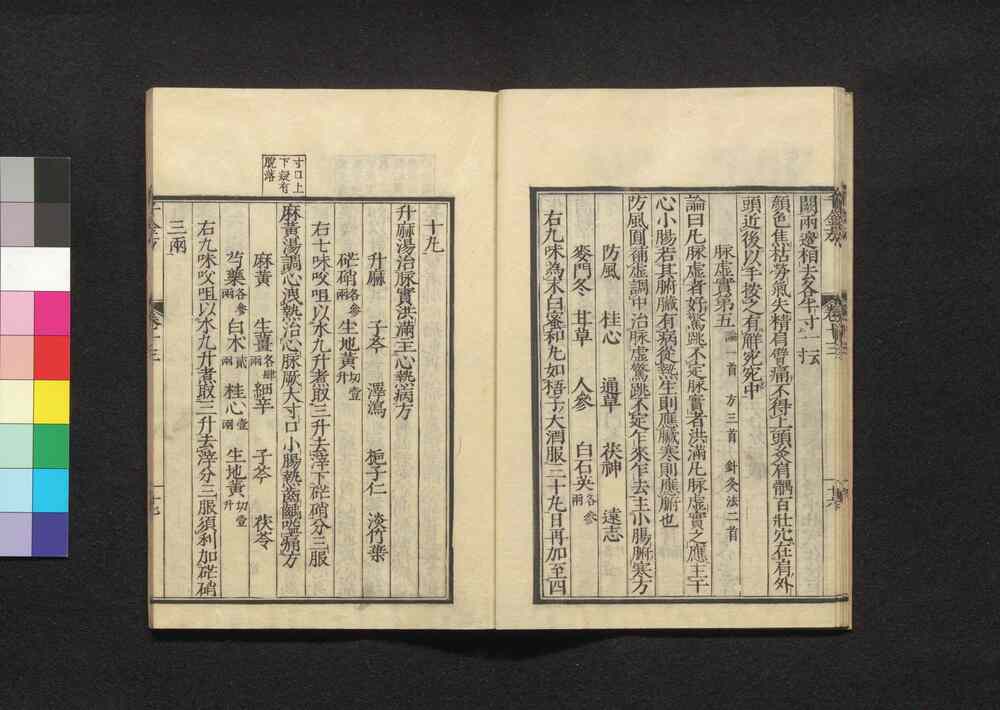 關兩邊相去各半寸二坛
顏色焦枯勞氣失精肩臂痛不得上頭灸肩髃百壯穴在肩外
頭近後以手按之有解宛宛中
脉虛實第五 論一首 方三首 針灸法二首
論曰凡脉虛者好驚跳不定脉實者洪滿凡脉虛實之應主于
心小腸若其腑臟有病從熱生則應臟寒則應腑也
防風圓補虛調中治脉虛驚跳不定乍來乍去主小腸腑寒方
防風 桂心 通草 茯神 遠志
麥門冬 甘草 人參 白石英各參兩
右九味為末白蜜和丸如梧子大酒服三十丸日再加至四
千金方 卷十三 十六
十丸
升麻湯治脉實洪滿主心熱病方
升麻 子芩 澤瀉 梔子仁 淡竹葉
芒硝各參兩 生地黃切壹升
右七味㕮咀以水九升煮取三升去滓下芒硝分三服
寸口上
下疑有
脫落
麻黃湯調心洩熱治心脉厥大寸口小腸熱齒齲嗌痛方
麻黃 生薑各肆兩 細辛 子芩 茯苓
芍藥各參兩 白朮貳兩 桂心壹兩 生地黃切壹升
右九味㕮咀以水九升煮取三升去滓分三服須利加芒硝
三兩
千金方 卷十三 十七